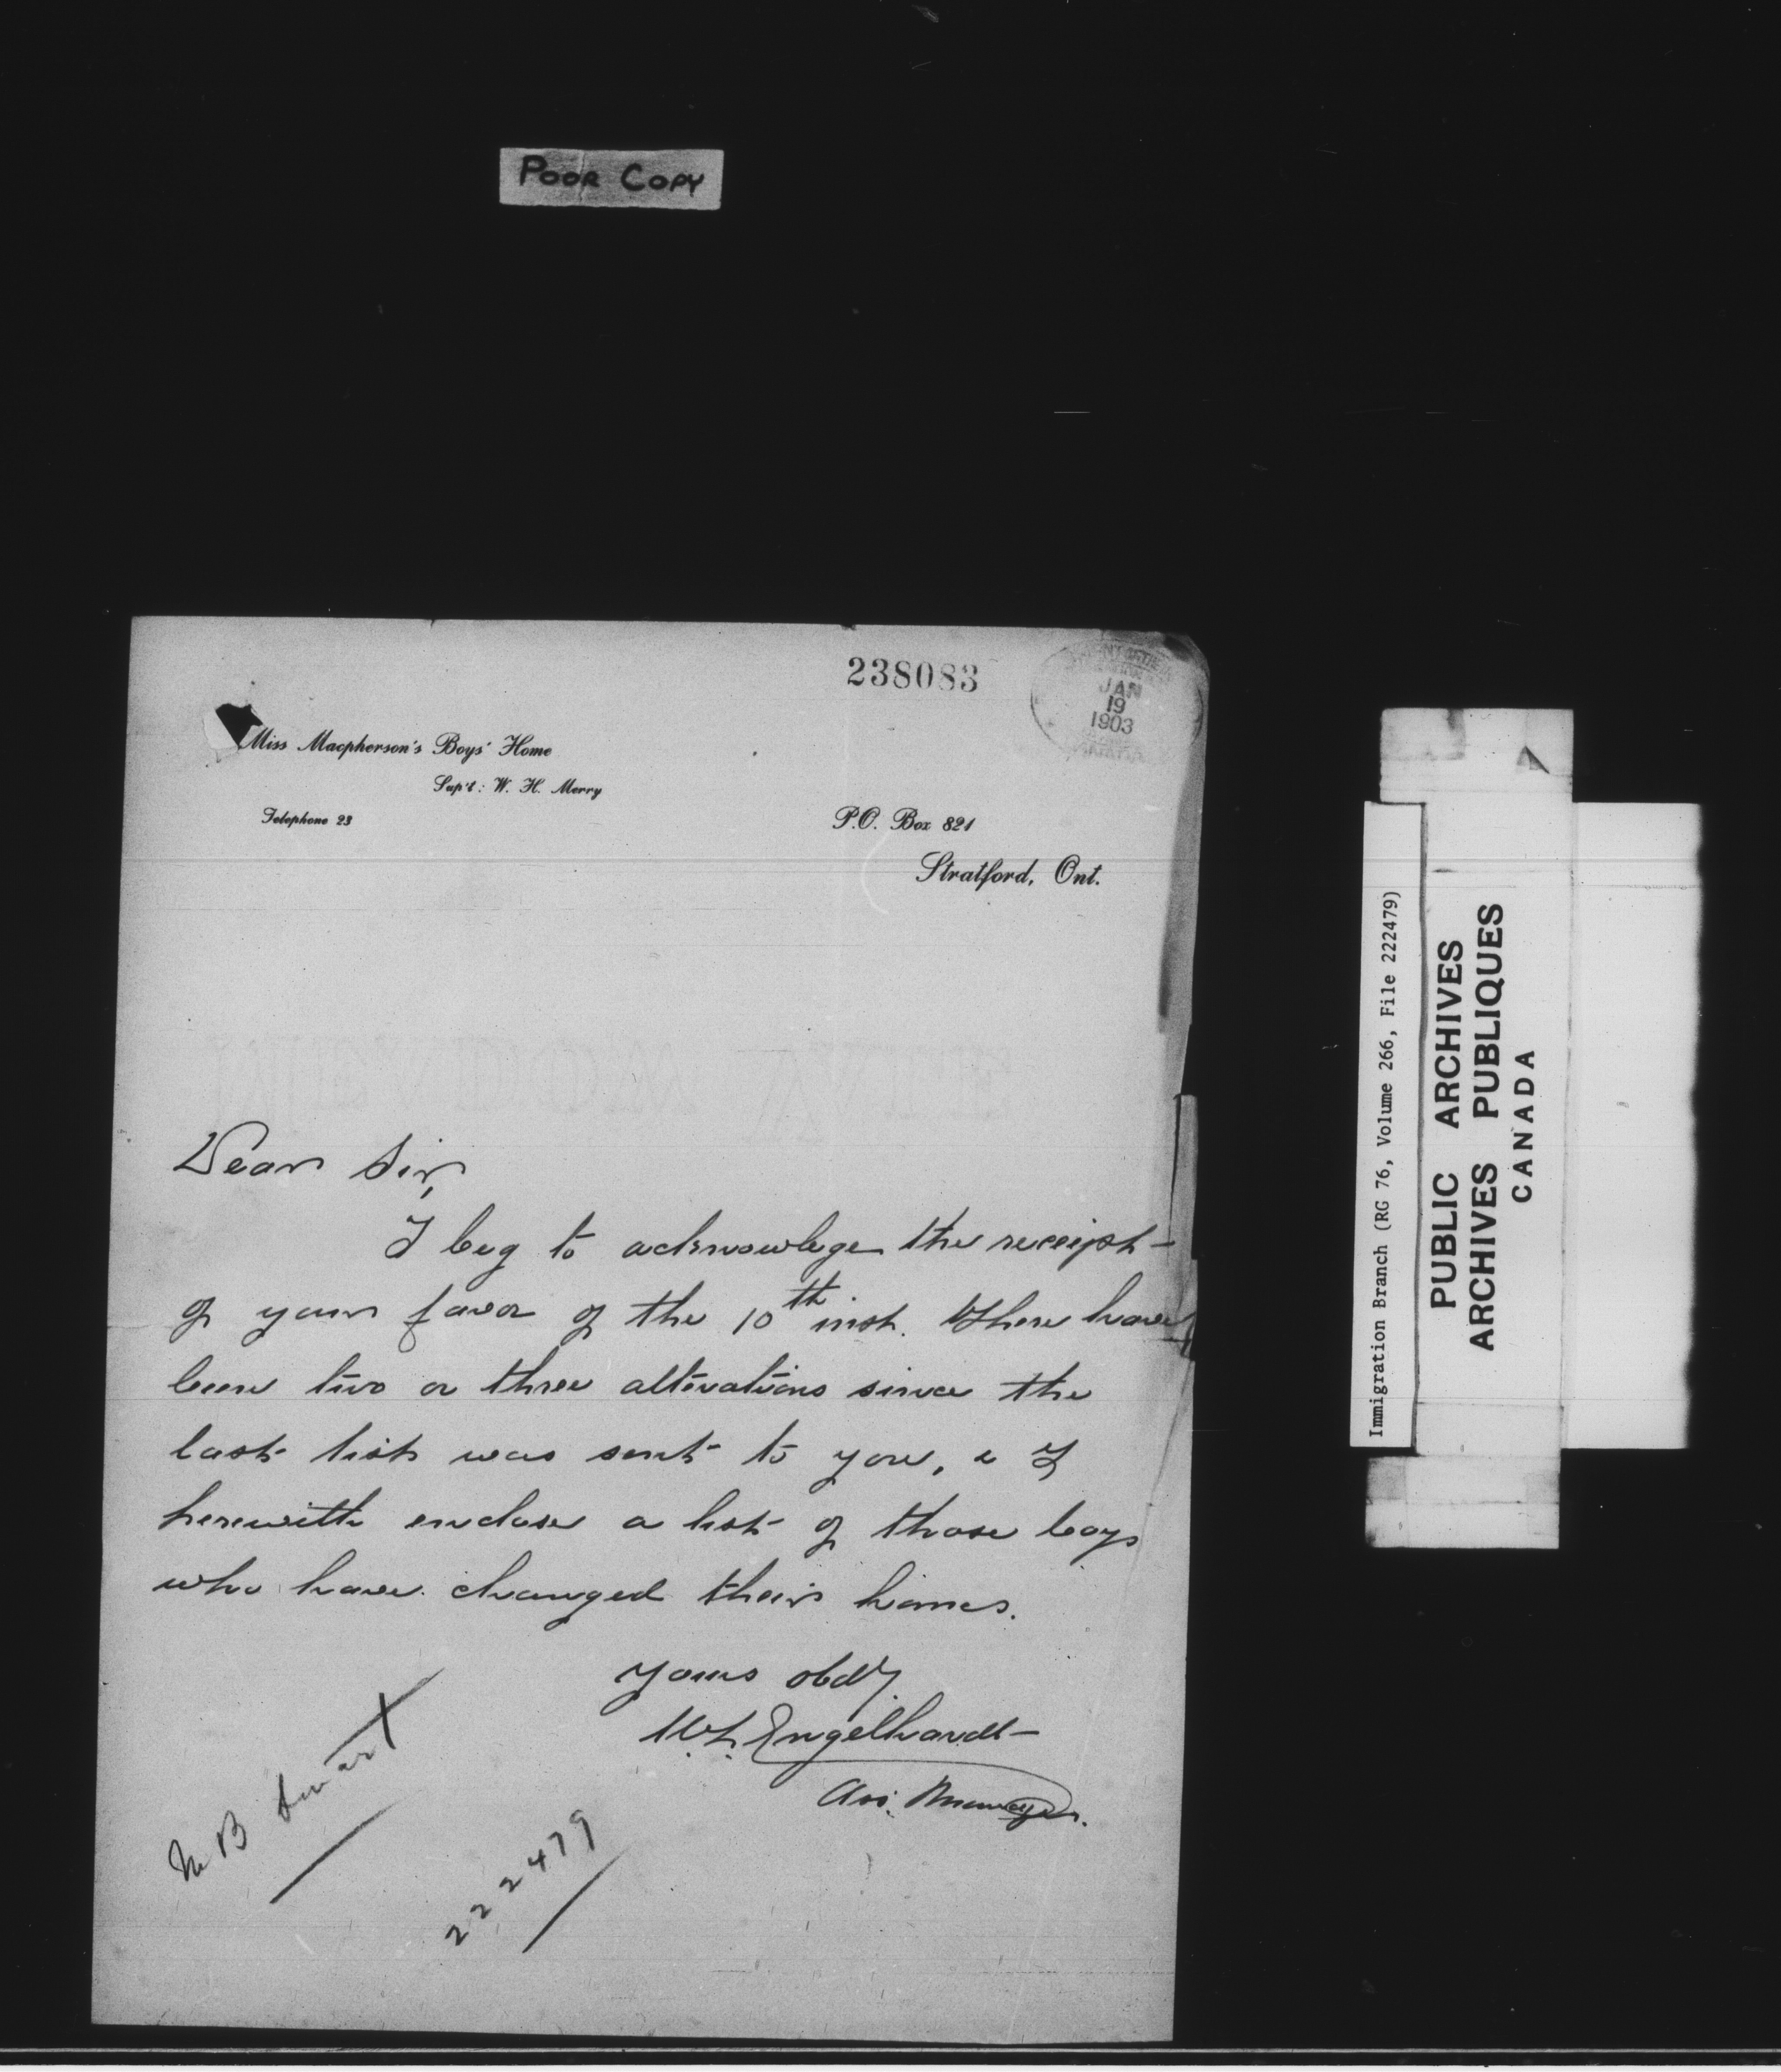 POOR COPY
238083
JAN
19
1903
Miss Macpherson's Boys' Home
Sup't: W. H. Merry
Telephone 23
P.O. Box 821
Stratford, Ont.
Dear Sir,
I beg to acknowlege the receipt
of your favor of the 10th inst. There have
been two or three alterations since the
last list was sent to you, & I
herewith enclose a list of those boys
who have changed their homes.
Yours obdy.
W.L. Engelhardt
Ass. Manager.
B Smart
222479
Immigration Branch (RG 76, Volume 266, File 222479)
PUBLIC ARCHIVES
ARCHIVES PUBLIQUES
CANADA